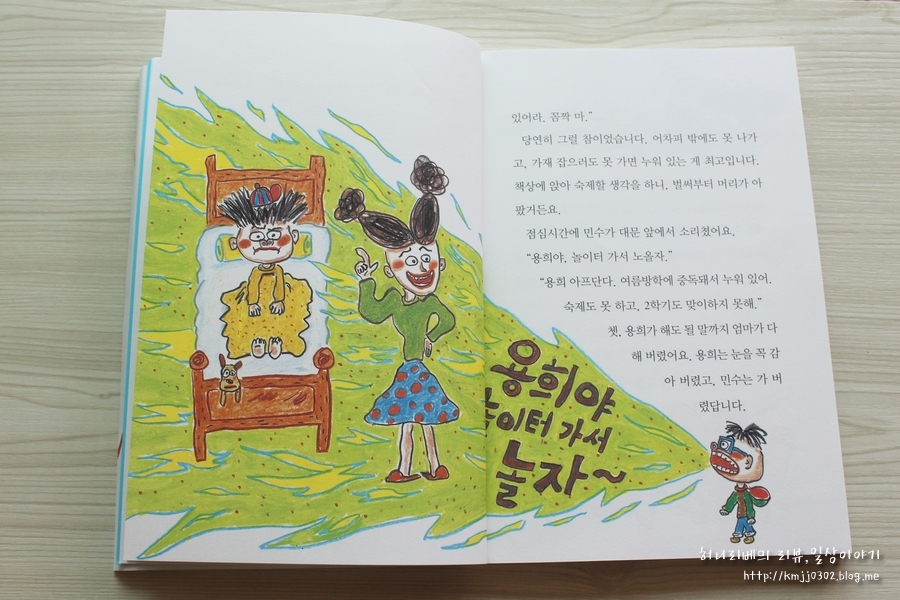 있어라. 꼼짝 마.”
당연히 그럴 참이었습니다. 어차피 밖에도 못 나가
고, 가재 잡으러도 못 가면 누워 있는 게 최고입니다.
책상에 앉아 숙제할 생각을 하니, 벌써부터 머리가 아
팠거든요.
점심시간에 민수가 대문 앞에서 소리쳤어요.
“용희야, 놀이터 가서 노올자.”
“용희 아프단다. 여름방학에 중독돼서 누워 있어.
숙제도 못 하고, 2학기도 맞이하지 못해.”
쳇, 용희가 해도 될 말까지 엄마가 다
해 버렸어요. 용희는 눈을 꼭 감
아 버렸고, 민수는 가 버
렸답니다.
용희야
놀이터 가서
놀자~
허니리베의 리뷰,일상이야기
http://kmjj0302.blog.me